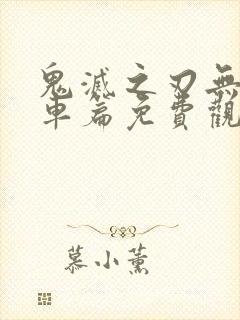 鬼滅之刃無
車篇免費觀
慕小薰